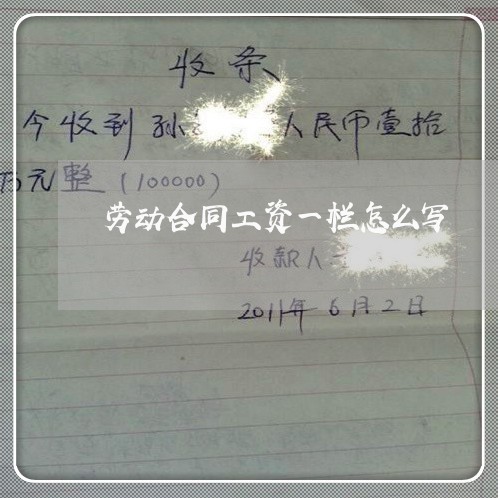 收条
今收到孙人民币壹拾
万元整（100000）
劳动合同工资一栏怎么写
收款人
2011年6月2日